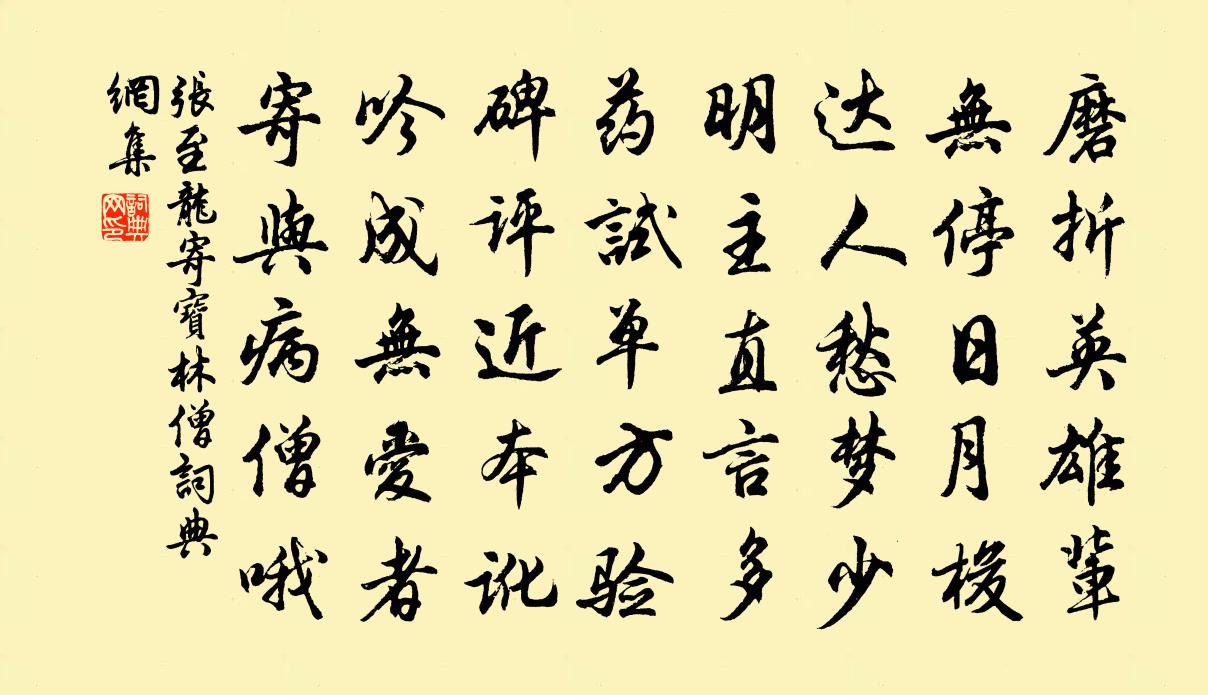 磨折英雄輩
無停日月梭
达人愁梦少
明主直言多
药試单方验
碑评近本讹
吟成無愛者
寄與病僧哦
張至龍寄寶林僧詞典
網集
詞典
网印